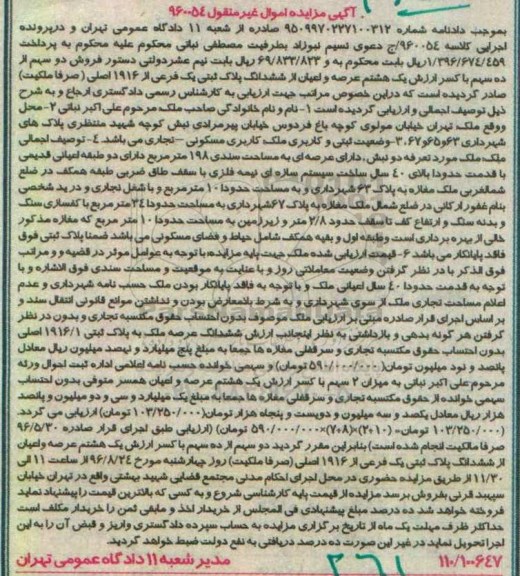 آگهی مزایده اموال غیرمنقول ۹۶۰۰۵۴
بموجب دادنامه شماره ۹۵۰۹۹۷۰۲۲۷۱۰۰۳۱۲ صادره از شعبه ۱۱ دادگاه عمومی تهران و درپرونده
اجرایی کلاسه ۹۶۰۰۵۴/ج دعوی نسیم نبوزاد بطرفیت مصطفی نباتی محکوم علیه محکوم به پرداخت
۱/۳۹۶/۶۷۴/۴۵۹ریال بابت محکوم به و ۶۹/۸۳۳/۸۲۳ ریال بابت نیم عشردولتی دستور فروش دو سهم از
ده سهم با کسر ارزش یک هشتم عرصه و اعیان از ششدانگ پلاک ثبتی یک فرعی از ۱۹۱۶ اصلی (صرفا ملکیت)
صادر گردیده است که دراین خصوص مراتب جهت ارزیابی به کارشناس رسمی دادگستری ارجاع و به شرح
ذیل توصیف اجمالی و ارزیابی گردیده است ۱- نام و نام خانوادگی صاحب ملک، مرحوم علی اکبر نباتی ۲- محل
ووقع ملک، تهران خیابان مولوی کوچه باغ فردوس خیابان پیرمرادی نبش کوچه شهید منتظری پلاک های
شهرداری ۶۳و۶۵و۶۷، ۳-وضعیت ثبتی و کاربری ملک، کاربری مسکونی -تجاری می باشد. ۴- توصیف اجمالی
ملک، ملک مورد تعرفه دو نبش، دارای عرصه ای به مساحت سندی ۱۹۸ مترمربع دارای دو طبقه اعیانی قدیمی
با قدمت حدودا بالای ۴۰ سال ساخت سیستم سازه ای نیمه فلزی با سقف طاق ضربی طبقه همکف در ضلع
شمالغربی ملک مغازه به پلاک ۶۳ شهرداری و به مساحت حدودا ۱۰ مترمربع و با شغل نجاری و در ید شخصی
بنام غفور ارکانی در ضلع شمال ملک مغازه به پلاک ۶۷شهرداری به مساحت حدودا ۳۴ مترمربع با کفسازی سنگ
و بدنه سنگ و ارتفاع کف تا سقف حدود ۲/۸ متر و زیرزمین به مساحت حدودا ۱۰ متر مربع که مغازه مذکور
خالی از بهره برداری است وطبقه اول و بقیه همکف شامل حیاط و فضای مسکونی می باشد ضمنا پلاک ثبتی فوق
فاقد پایانکار می باشد ۶- قیمت ارزیابی شده ملک جهت پایه مزایده، با توجه به عوامل موثر در قضیه و و مراتب
فوق الذکر با در نظر گرفتن وضعیت معاملاتی روز و با عنایت به موقعیت و مساحت سندی فوق الاشاره و با
توجه به قدمت حدودا ۴۰ سال اعیانی ملک و با توجه به فاقد پایانکار بودن ملک حسب نامه شهرداری و عدم
اعلام مساحت تجاری ملک از سوی شهرداری و به شرط بلامعارض بودن و نداشتن موانع قانونی انتقال سند و
بر اساس اجرای قرار صادره مبنی بر ارزیابی ملک موصوف بدون احتساب حقوق مکتسبه تجاری و بدون در نظر
گرفتن هر گونه بدهی و بازداشتی به نظر اینجانب ارزش ششدانگ عرصه ملک به پلاک ثبتی ۱۹۱۶/۱ اصلی
بدون احتساب حقوق مکتسبه تجاری و سرقفلی مغازه ها جمعا به مبلغ پنج میلیارد و نهصد میلیون ریال معادل
پانصد و نود میلیون تومان(۵۹۰/۰۰۰/۰۰۰تومان) و سهمی خوانده حسب نامه اعلامی اداره ثبت احوال ورثه
مرحوم علی اکبر نباتی به میزان ۲ سهم با کسر ارزش یک هشتم عرصه و اعیان همسر متوفی بدون احتساب
سهمی خوانده از حقوق مکتسبه تجاری و سرقفلی مغازه ها جمعا به مبلغ یک میلیارد و سی و دو میلیون و پانصد
هزار ریال معادل یکصد و سه میلیون و دویست و پنجاه هزار تومان(۱۰۳/۲۵۰/۰۰۰ تومان) ارزیابی می گردد.
(۱۰۳/۲۵۰/۰۰۰ تومان=(۲÷۱۰)×(۷÷۸)×۵۹۰/۰۰۰/۰۰۰ تومان) (ارزیابی طبق اجرای قرار صادره ۹۶/۵/۳۰
صرفا مالکیت انجام شده است) بنابراین مقرر گردید دو سهم از ده سهم با کسر ارزش یک هشتم عرصه واعیان
از ششدانگ پلاک ثبتی یک فرعی از ۱۹۱۶ اصلی (صرفا ملکیت) روز چهارشنبه مورخ ۹۶/۸/۲۴ از ساعت ۱۱ الی
۱۱/۳۰ از طریق مزایده حضوری در محل اجرای احکام مدنی مجتمع قضایی شهید بهشتی واقع در تهران خیابان
سپهبد قرنی بفروش برسد مزایده از قیمت پایه کارشناسی شروع و به کسی که بالاترین قیمت را پیشنهاد نماید
فروخته خواهد شد ده درصد مبلغ پیشنهادی فی المجلس از خریدار اخذ و مابقی ثمن را خریدار مکلف است
حداکثر ظرف مهلت یک ماه از تاریخ برگزاری مزایده به حساب سپرده دادگستری واریز و قبض آن را به این
اجرا تحویل نماید در غیر این صورت ده درصد دریافتی به نفع دولت ضبط خواهد گردید.
۱۱۰/۱۰۰۶۴۷ مدیر شعبه ۱۱ دادگاه عمومی تهران